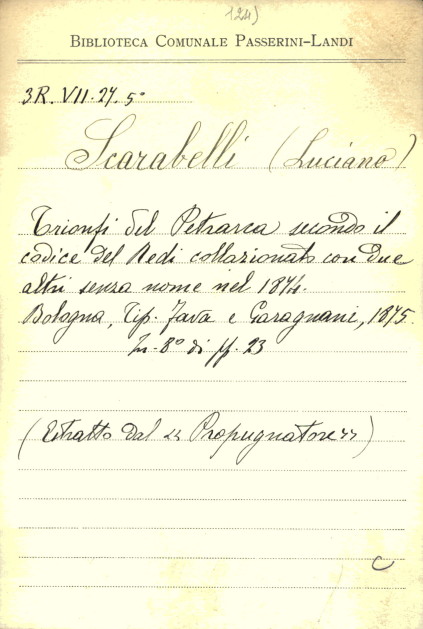 124)
BIBLIOTECA COMUNALE PASSERINI-LANDI
3R. VII. 27. 5°
Scarabelli (Luciano)
Trionfi del Petrarca secondo il
codice del Redi collazionato con due
altri senza nome nel 1874.
Bologna, Tip. Fava e Garagnani, 1875.
In-8° di pp. 23
(Estratto dal "Propugnatore")
C